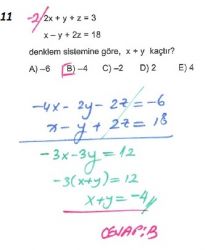 11 -2/ 2x + y + z = 3
x – y + 2z = 18
denklem sistemine göre, x + y kaçtır?
A) –6 B) –4 C) –2 D) 2 E) 4
-4x - 2y - 2z = -6
x - y + 2z = 18
-3x - 3y = 12
-3(x+y) = 12
x+y = -4
CEVAP: B